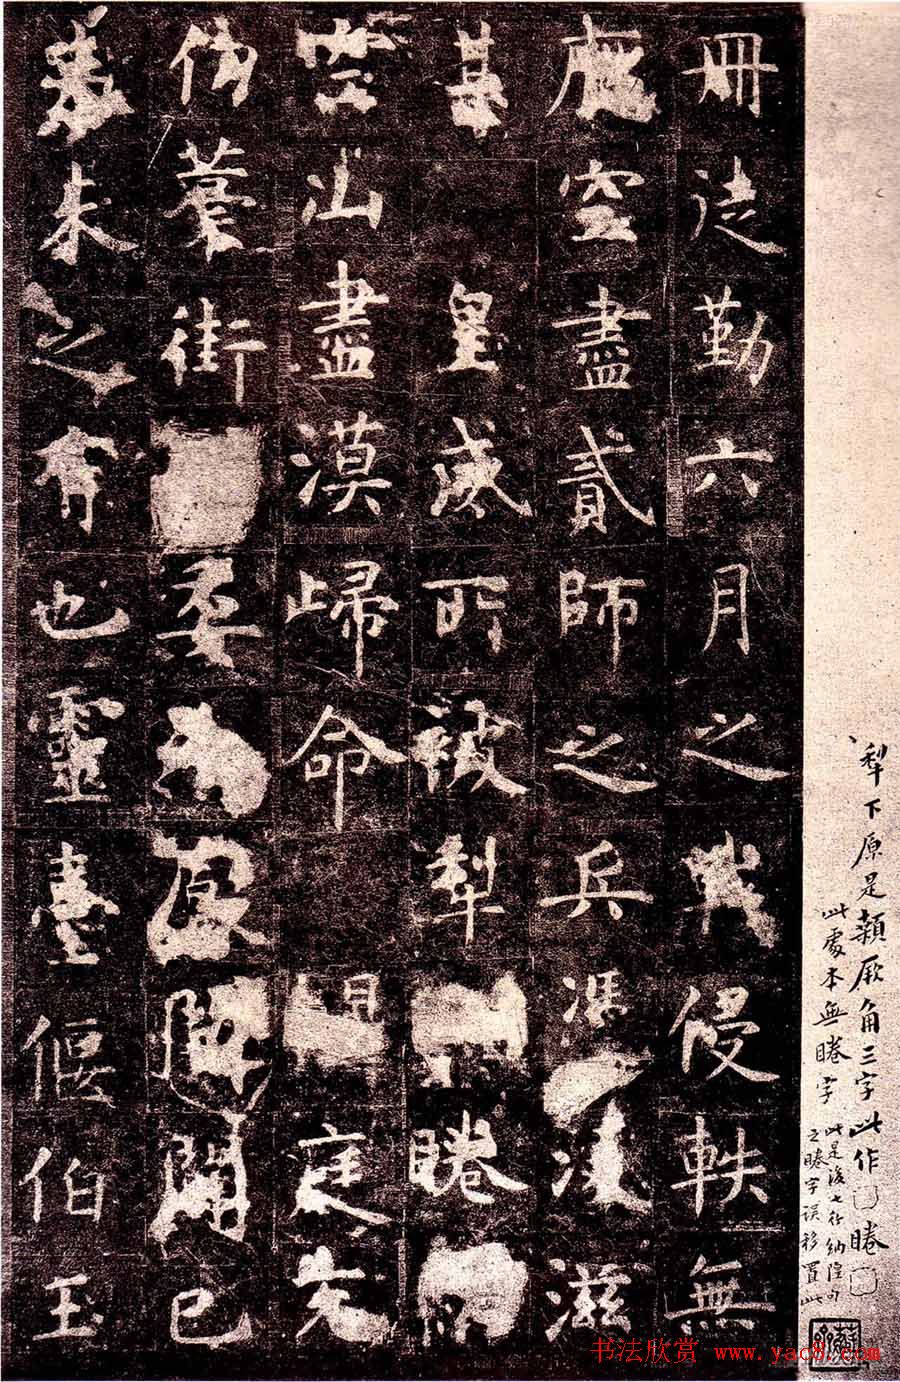 冊徒勤六月之戰侵軼無
厭空盡貳師之兵馮凌滋
甚皇威所被犁睠
空山盡漠歸命庭充
仞藁街委外厩開闢已
來未之有也靈臺偃伯玉
犁下原是顙厥角三字此作□睠□
此處本無睠字
此是後七行納隍句
之睠字誤移置此
书法欣赏 www.yac8.com